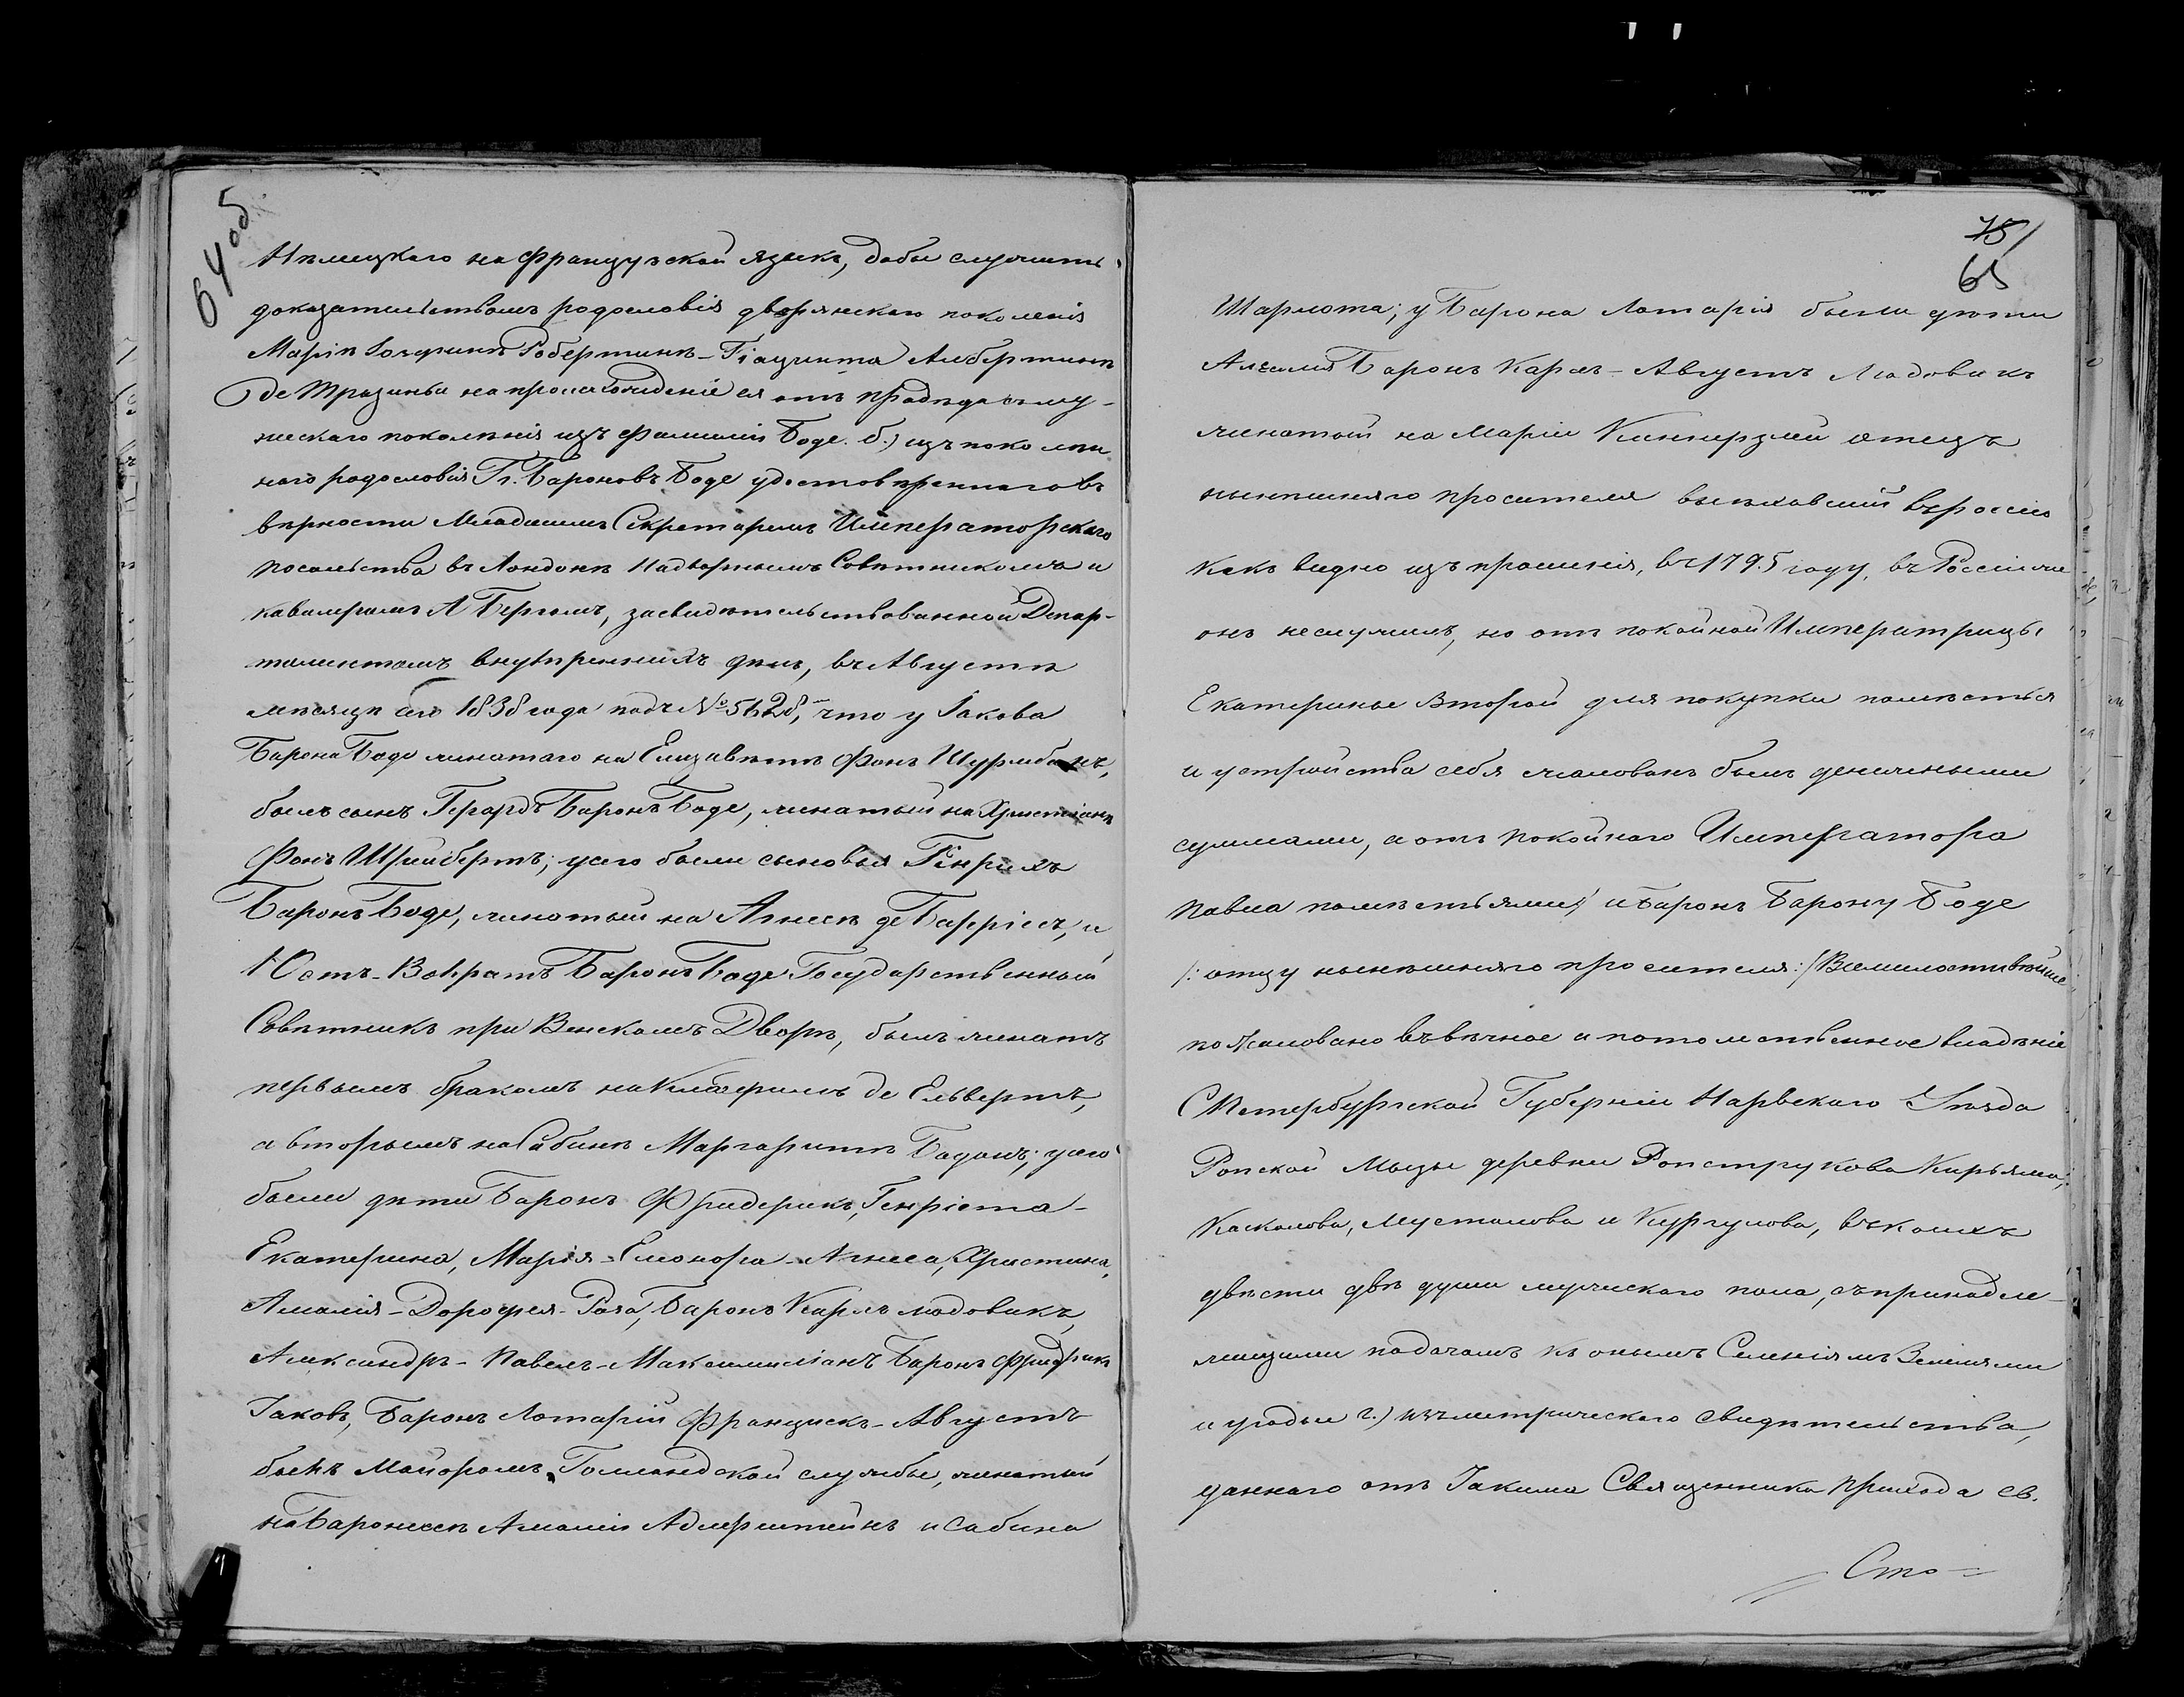 64 об
Нѣмецкаго на французской языкъ, дабы служить
доказательствомъ родословія дворянскаго поколенія
Маріи Робертинѣ-Гіацинта Албертинѣ
де Тразиньи на происхожденіе ея отъ прадѣда муж-
жескаго поколѣнія изъ фамиліи Боде. б.) изъ поколѣн
наго родословія Гг. Бароновъ Боде удостовѣреннаго въ
вѣрности Младшимъ Секретаремъ Императорскаго
посольства въ Лондонѣ Надворнымъ Совѣтникомъ и
кавалеромъ А Бергомъ, засвидѣтельствованной Депар-
таментомъ внутреннихъ дѣлъ, въ Августѣ
мѣсяцѣ сего 1838 года подъ № 5628, что у Іакова
Барона Боде женатаго на Елизаветѣ фонъ
былъ сынъ Герардъ Баронъ Боде, женатый на Христіанѣ
Фонъ Шрейбертъ; у него были сыновья Генрихъ
Баронъ Боде, женатый на Агнесѣ де Баррісъ, и
Юстъ-Вократъ Баронъ Боде Государственный
Совѣтникъ при Венскомъ Дворѣ, былъ женатъ
первымъ бракомъ на де Ельвертъ,
а вторымъ на Сабинѣ Маргаритѣ Баданъ; у него
были дѣти Баронъ Фридерикъ, Генріета-
Екатерина, Марія-Елонора-Агнеса, Христина,
Амалія-Дорофея-Роза, Баронъ Карлъ людовикъ,
Александръ-Павелъ-Максимиліанъ Баронъ Фридрикъ
Іаковъ, Баронъ Лотарій Францискъ-Августъ
бывъ Маіоромъ Голландской службы, женатый
на Баронессѣ Амаліи Адлерштейнъ и Сабина
75
65
Шарлота; у Барона Лотарія были дѣти
Амалія Баронъ Карлъ-Августъ Людовикъ
женатый на Маріи Киннерзли отецъ
нынѣшняго просителя выѣхавшій въ россію
какъ видно изъ прошенія, въ 1795 году, въ Россіи же
онъ неслужилъ, но отъ покойной Императрицы
Екатерины Второй для покупки помѣстья
и устройства себя жалованъ былъ денежными
суммами, а отъ покойнаго Императора
Павла помѣстьями, и Баронъ Барону Боде
/: отцу нынѣшняго просителя :/ Всемилостивѣйше
пожаловано въ вѣчное и потомственное владѣніе
СПетербургской Губерніи Нарвскаго Уѣзда
Ропской Мызы деревни Ропструкова Кирьяма,
Касколова, Мусталова и Кургулова, въ коихъ
двѣсти двѣ души мужскаго пола, съ принадле-
жащими подачамъ къ онымъ Селеніямъ Землями
и угодьи г.) изъ метрическаго свидѣтельства,
даннаго отъ Іакима Священника прихода св.
Сто-